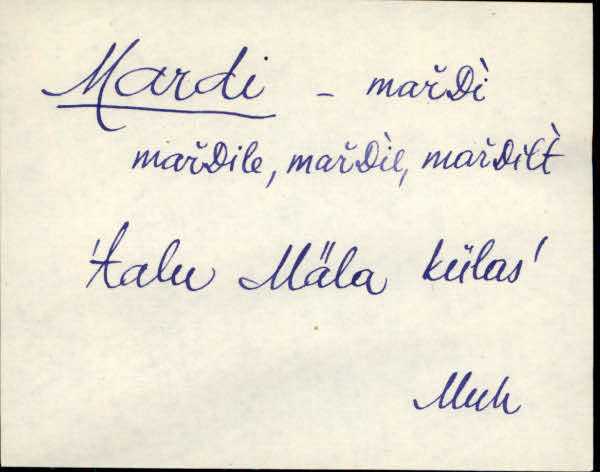 Mardi - mařDì
mařDile, mařDìl, mařDilt̀
'talu Mäla külas'
Muh